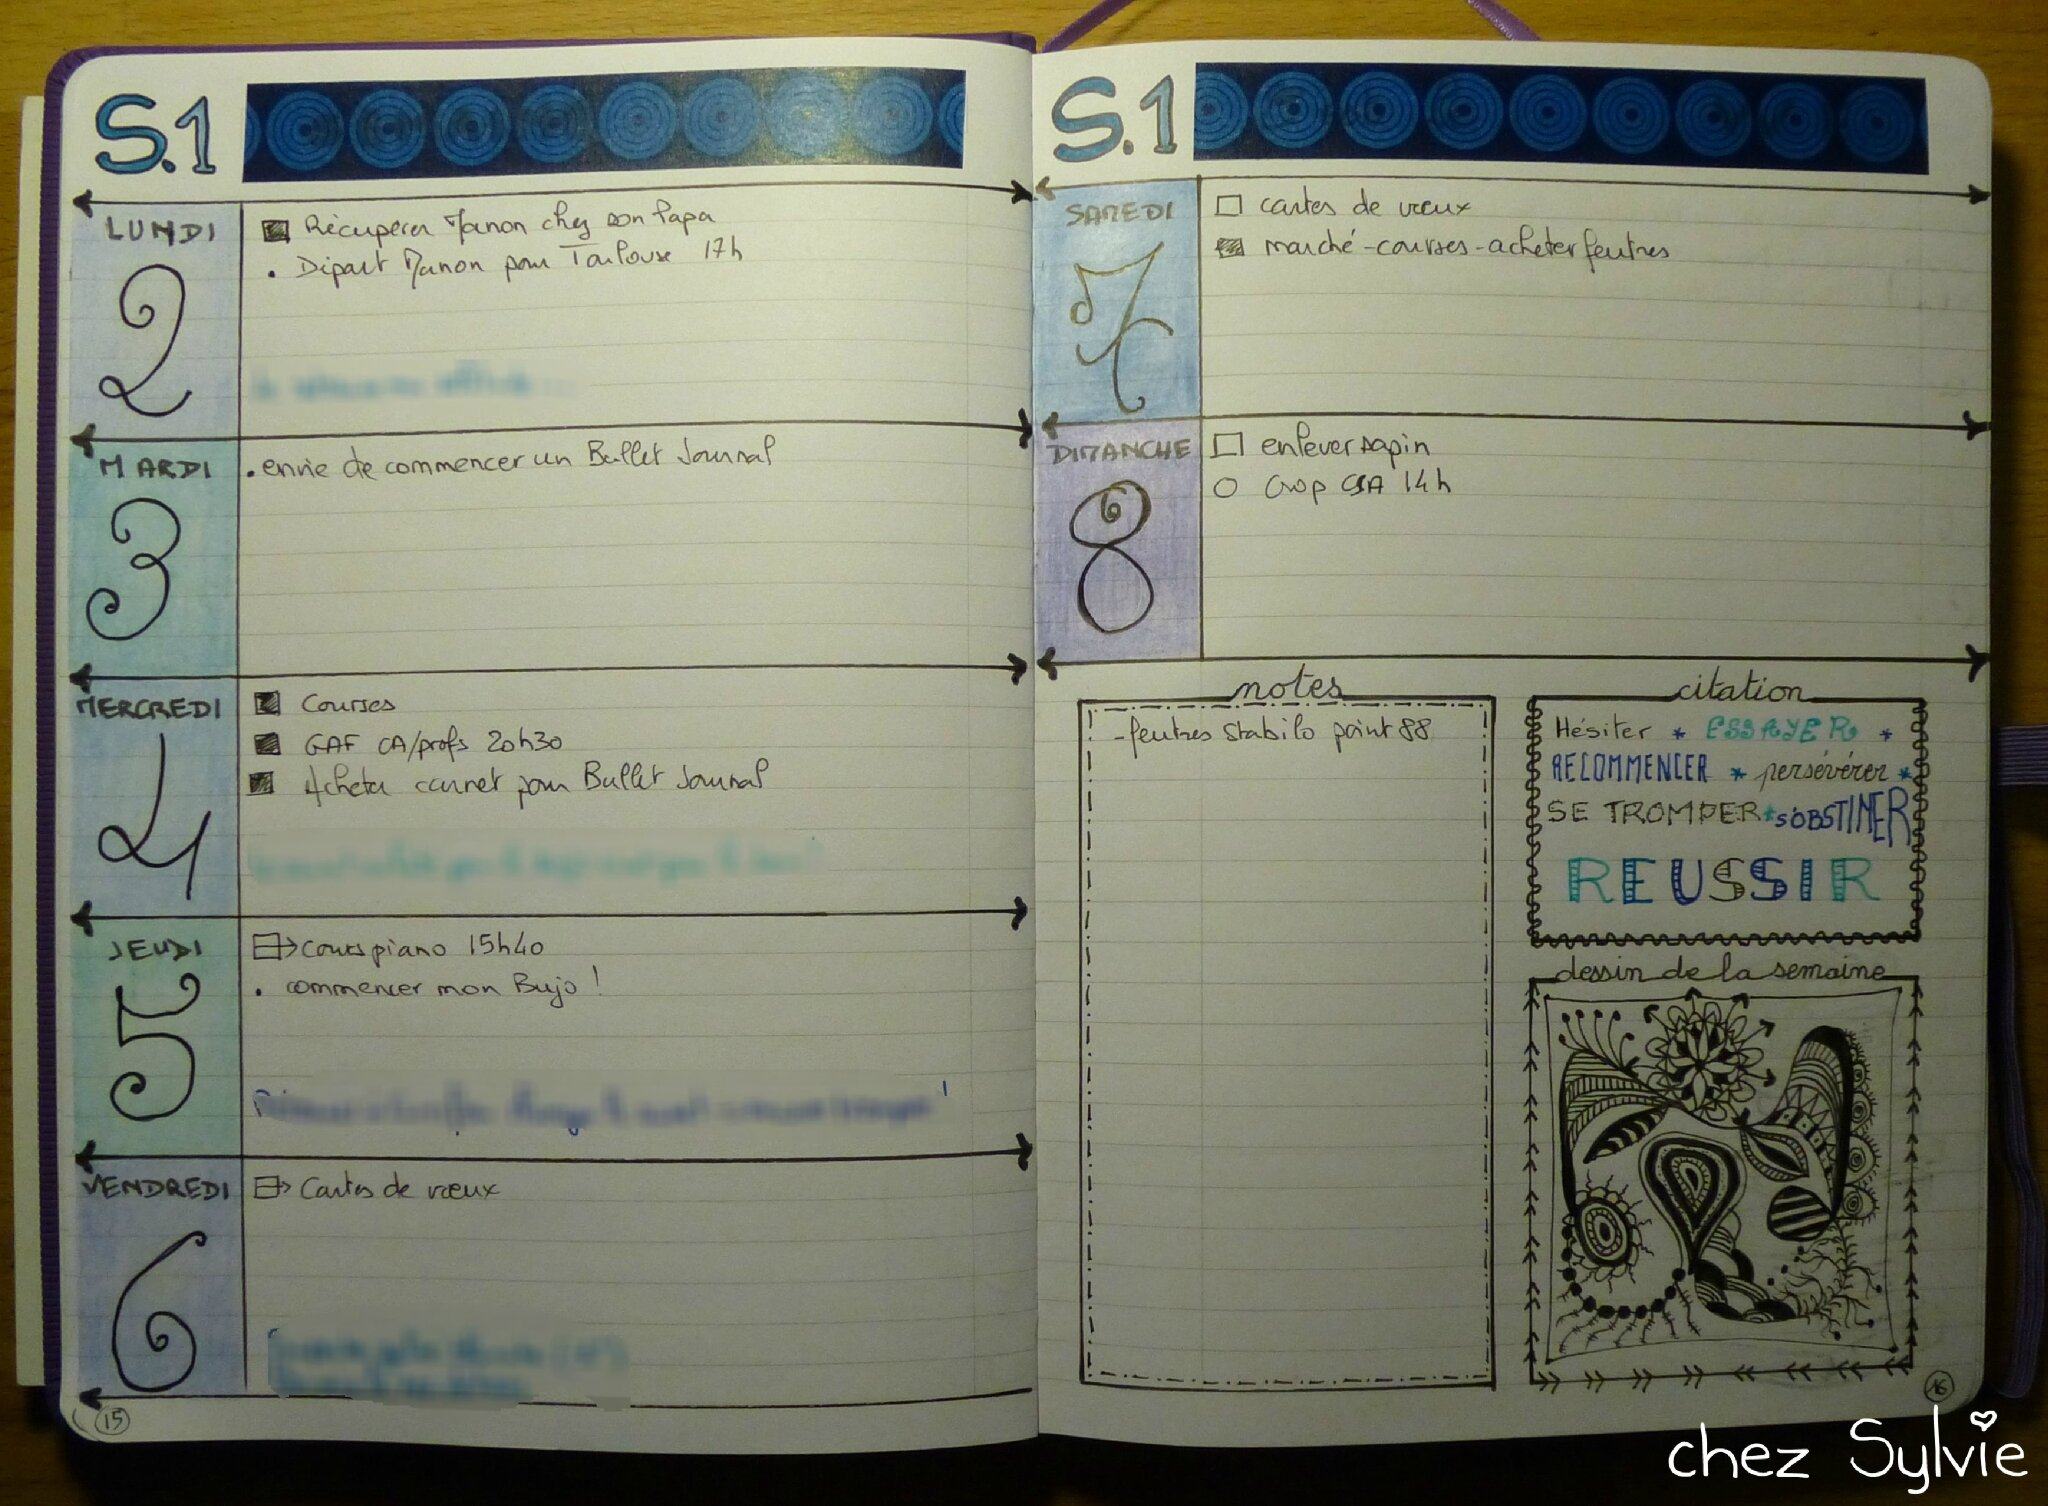 S.1
LUNDI
2
Récupérer Manon chez son Papa
. Départ Manon pour Toulouse 17h
MARDI
3
. envie de commencer un Bullet Journal
MERCREDI
4
Courses
GAF CA/profs 20h30
Acheter carnet pour Bullet Journal
JEUDI
5
Cours piano 15h40
. commencer mon Bujo !
VENDREDI
6
Cartes de vœux
15
S.1
SAMEDI
7
cartes de vœux
marché - courses - acheter feutres
DIMANCHE
8
enlever sapin
Crop CSA 14h
notes
- feutres Stabilo point 88
citation
Hésiter * ESSAYER *
RECOMMENCER * persévérer *
SE TROMPER * s'OBSTINER
REUSSIR
dessin de la semaine
16
chez Sylvie